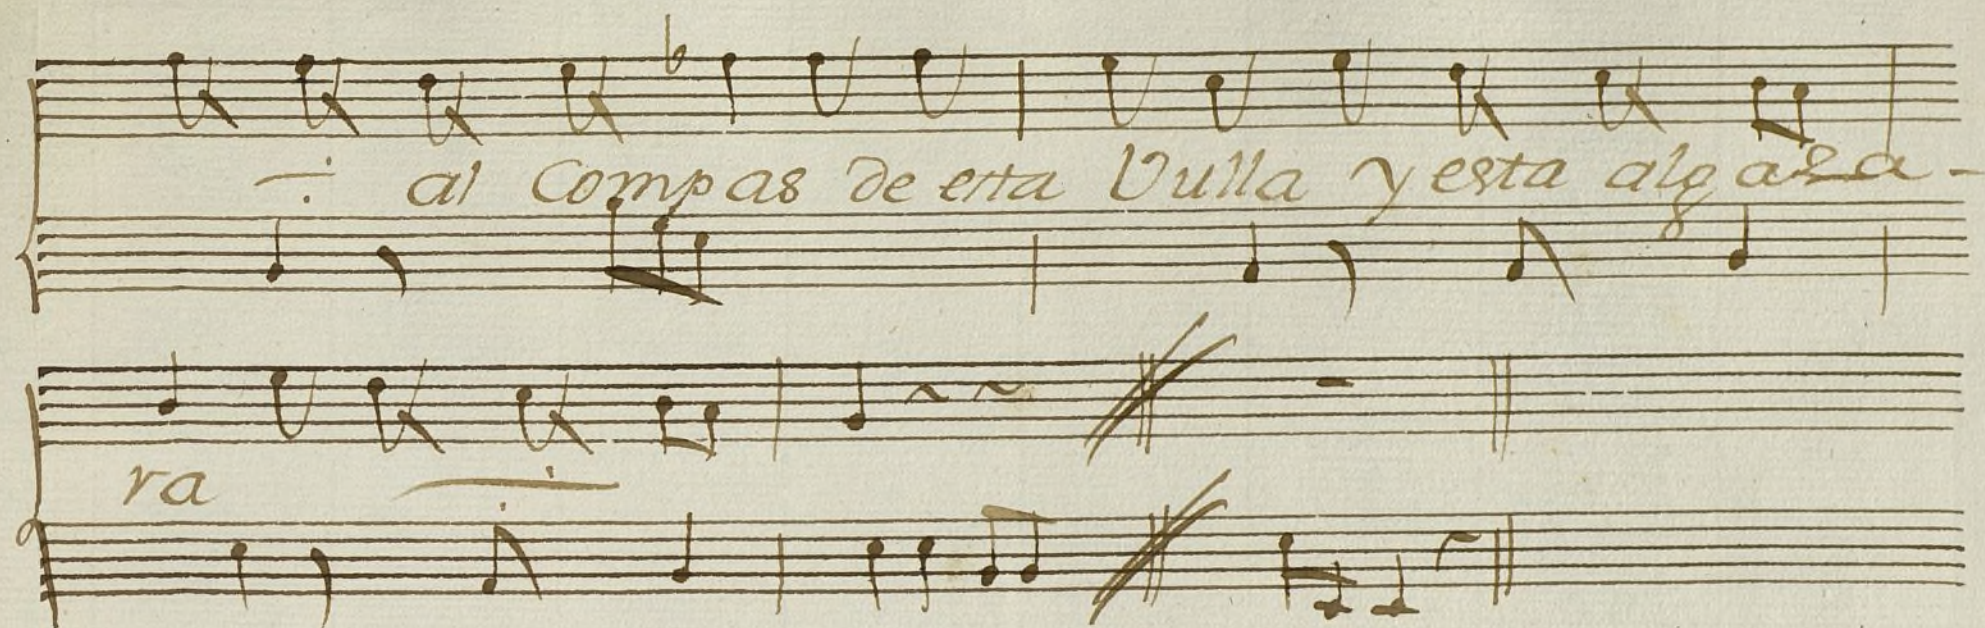 al Compas de esta Vulla y esta algaza-
ra